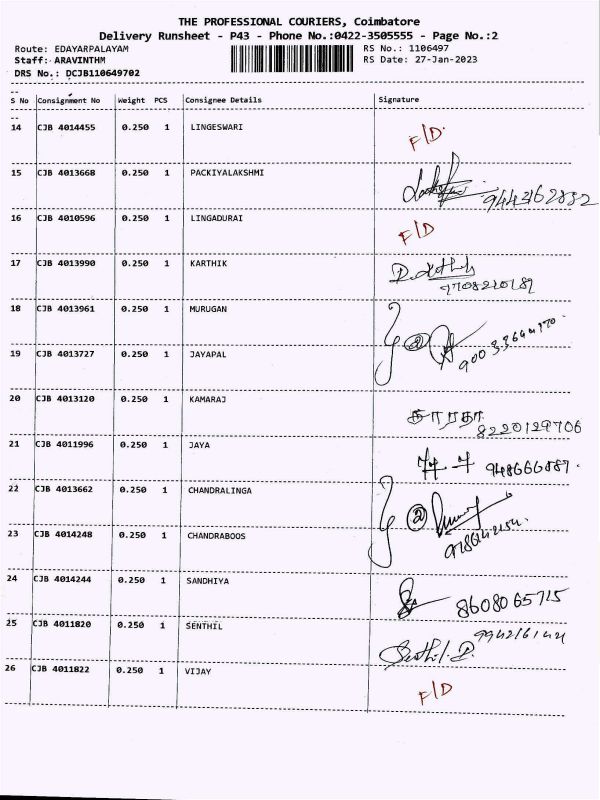 THE PROFESSIONAL COURIERS, Coimbatore
Delivery Runsheet - P43 - Phone No.:0422-3505555 - Page No.:2
Route: EDAYARPALAYAM RS No.: 1106497
Staff: ARAVINTHM RS Date: 27-Jan-2023
DRS No.: DCJB110649702
S No Consignment No Weight PCS Consignee Details Signature
14 CJB 4014455 0.250 1 LINGESWARI F/D.
15 CJB 4013668 0.250 1 PACKIYALAKSHMI
16 CJB 4010596 0.250 1 LINGADURAI F/D
17 CJB 4013990 0.250 1 KARTHIK
18 CJB 4013961 0.250 1 MURUGAN
19 CJB 4013727 0.250 1 JAYAPAL
20 CJB 4013120 0.250 1 KAMARAJ சாரதா 8220129706
21 CJB 4011996 0.250 1 JAYA
22 CJB 4013662 0.250 1 CHANDRALINGA
23 CJB 4014248 0.250 1 CHANDRABOOS
24 CJB 4014244 0.250 1 SANDHIYA 8608065715
25 CJB 4011820 0.250 1 SENTHIL Senthil. P.
26 CJB 4011822 0.250 1 VIJAY F/D